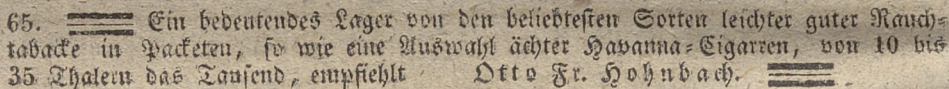 65. Ein bedeutendes Lager von den beliebtesten Sorten leichter guter Rauch-
tabacke in Packeten, so wie eine Auswahl ächter Havanna-Cigarren, von 10 bis
35 Thalern das Tausend, empfiehlt Otto Fr. Hohnbach.